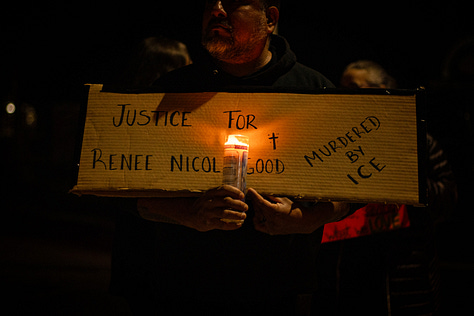 JUSTICE FOR
RENEE NICOL GOOD
MURDERED
BY
ICE